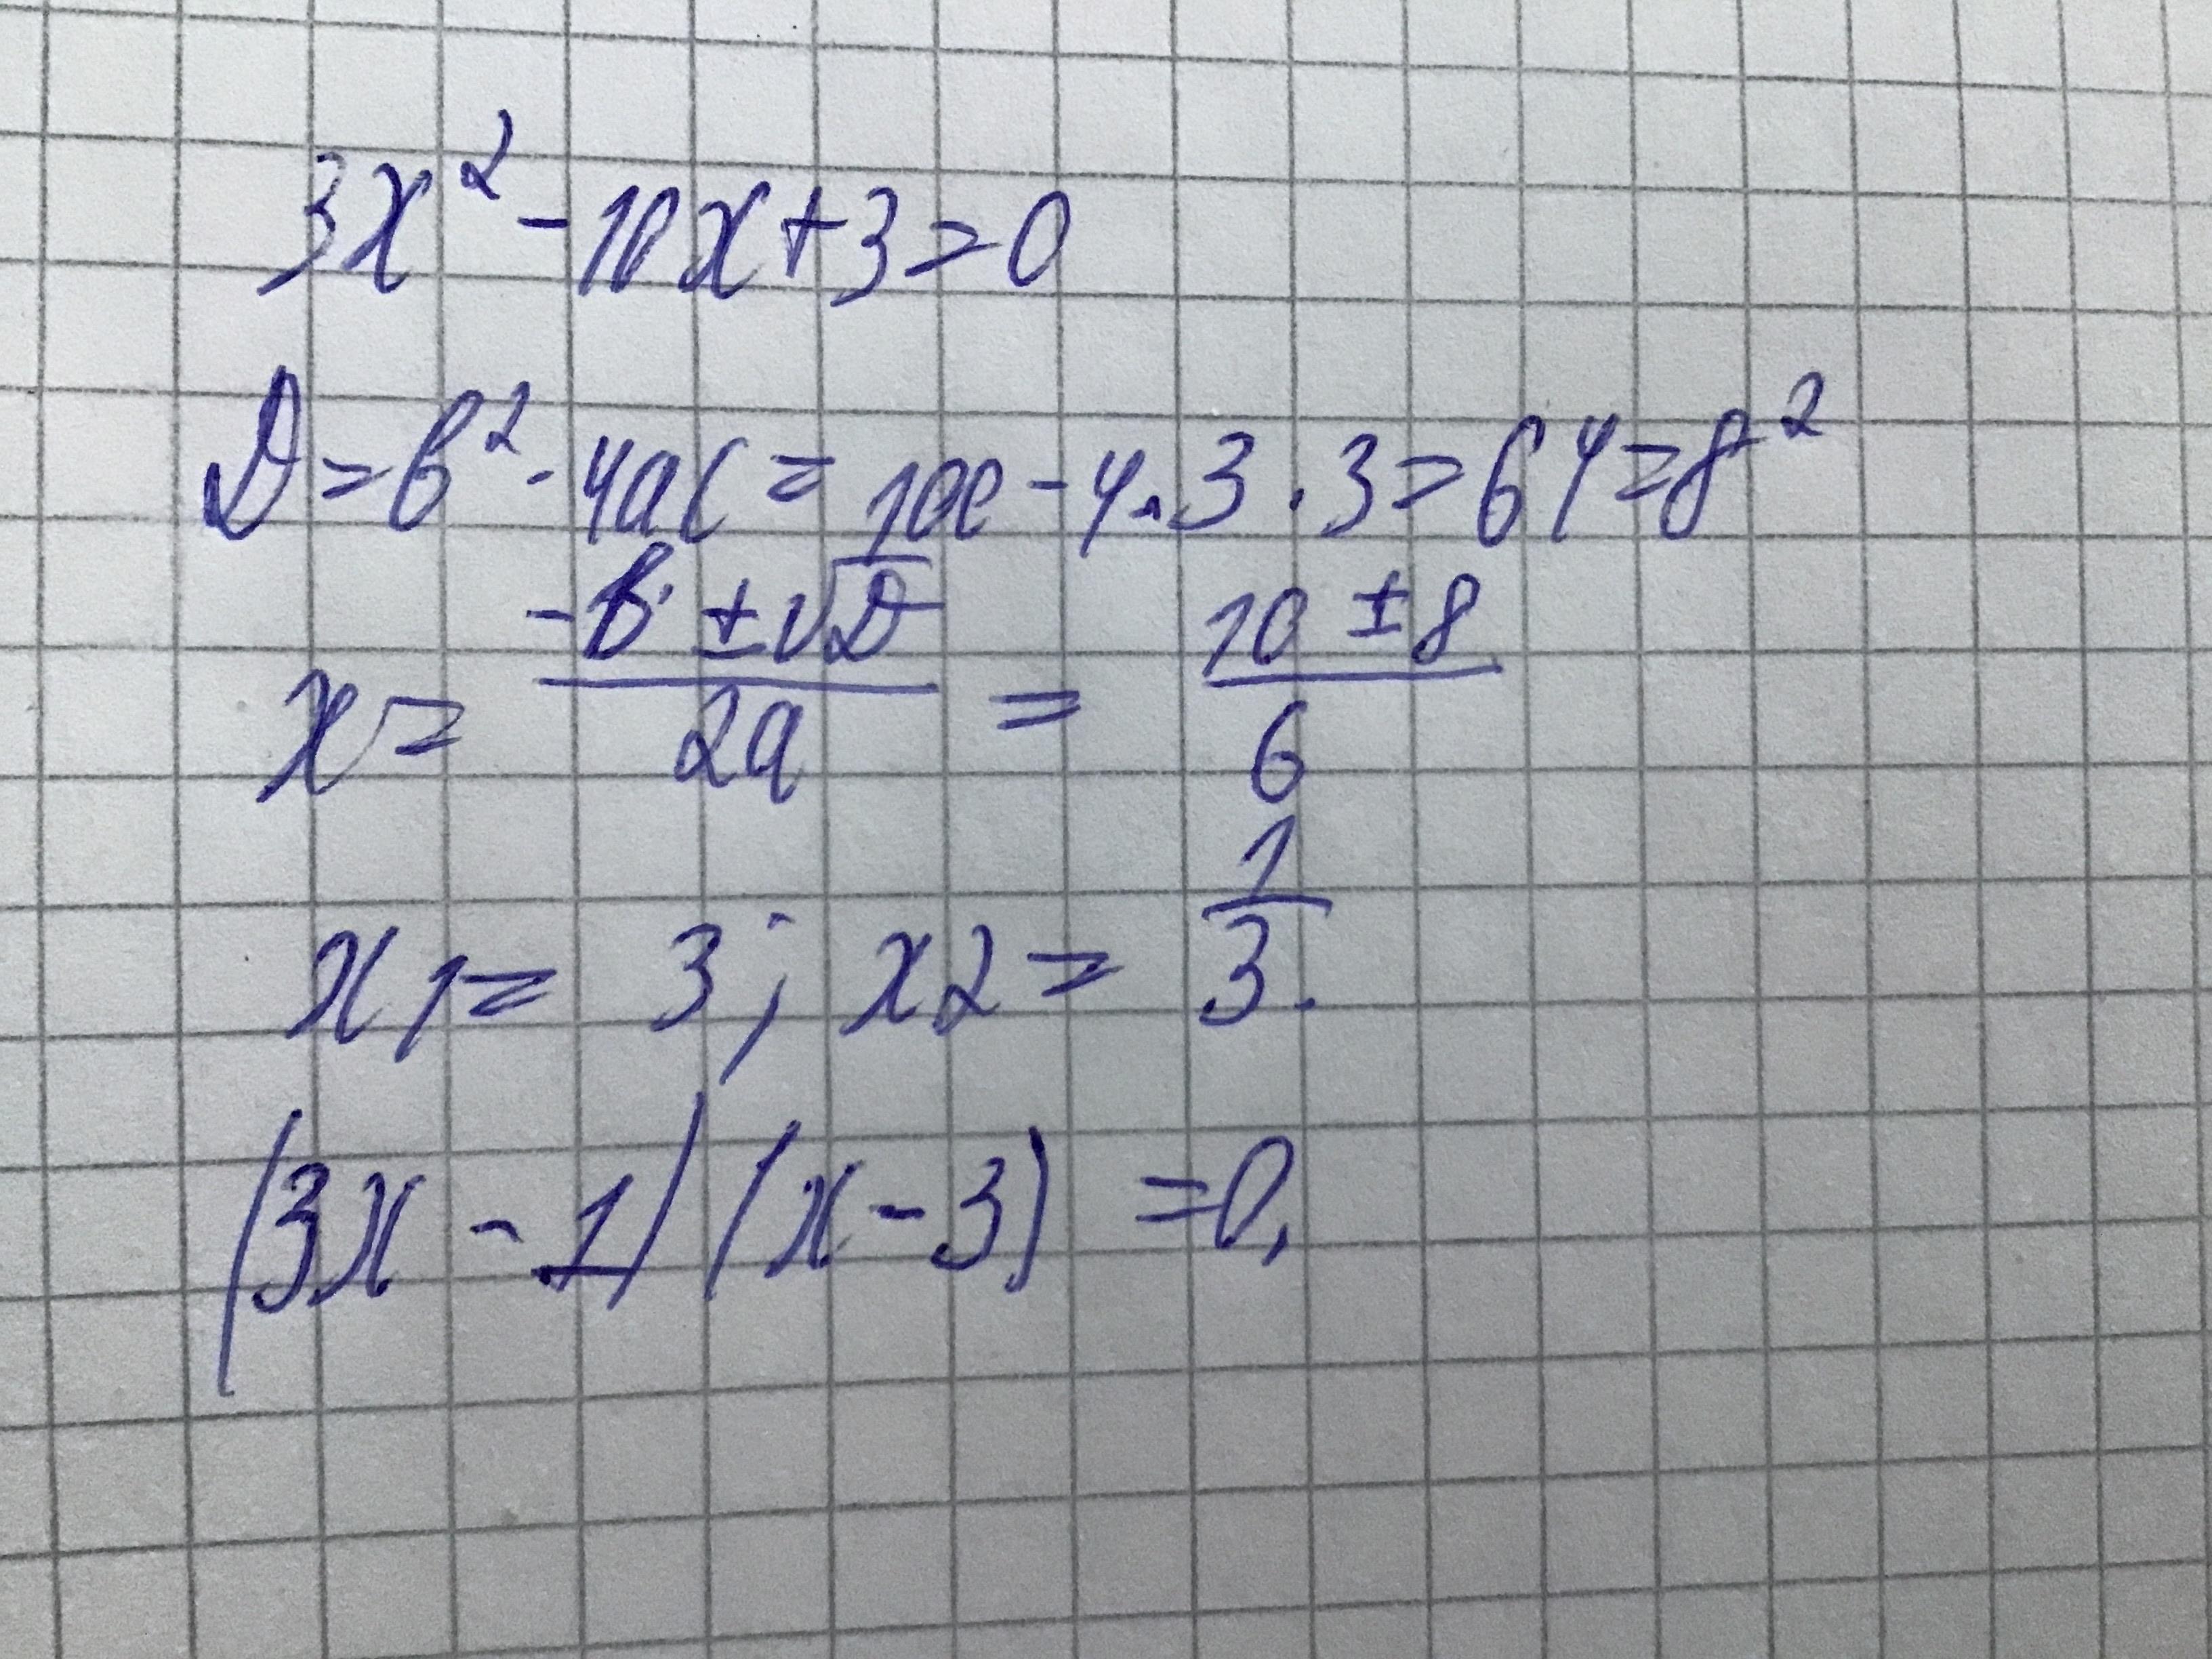 3x² - 10x + 3 = 0
D = b² - 4ac = 100 - 4 · 3 · 3 = 64 = 8²
x = (-b ± √D) / 2a = (10 ± 8) / 6
x1 = 3; x2 = 1/3.
(3x - 1)(x - 3) = 0,